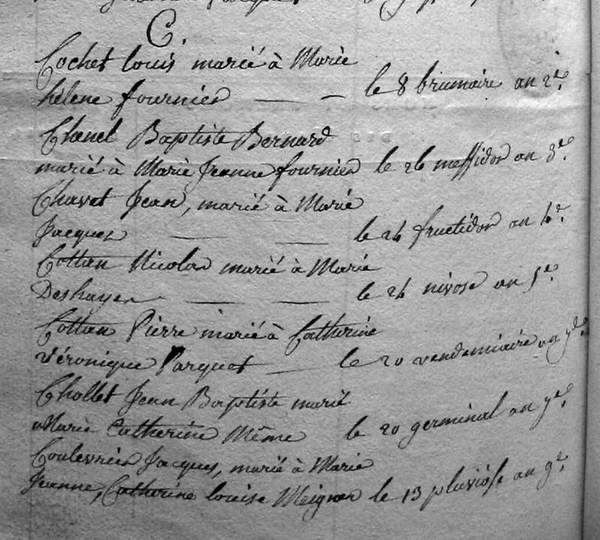 C.
Cochet louis marié à Marie
hélene fournier le 8 brumaire an 2e.
Chanel Baptiste Bernard
marié à Marie Jeanne fournier le 26 messidor an 3e.
Chavet Jean, marié à Marie
Jacques le 24 fructidor an 4e.
Cottan Nicolas marié à Marie
Deshayes le 24 nivose an 5e.
Cottan Pierre marié à Catherine
Véronique Parquet le 20 vendemiaire an 7e.
Chollet Jean Baptiste marié
Marie Catherine Même le 20 germinal an 7e.
Coulevrier Jacques, marié à Marie
Jeanne, Catherine louise Meignan le 13 pluviôse an 9e.